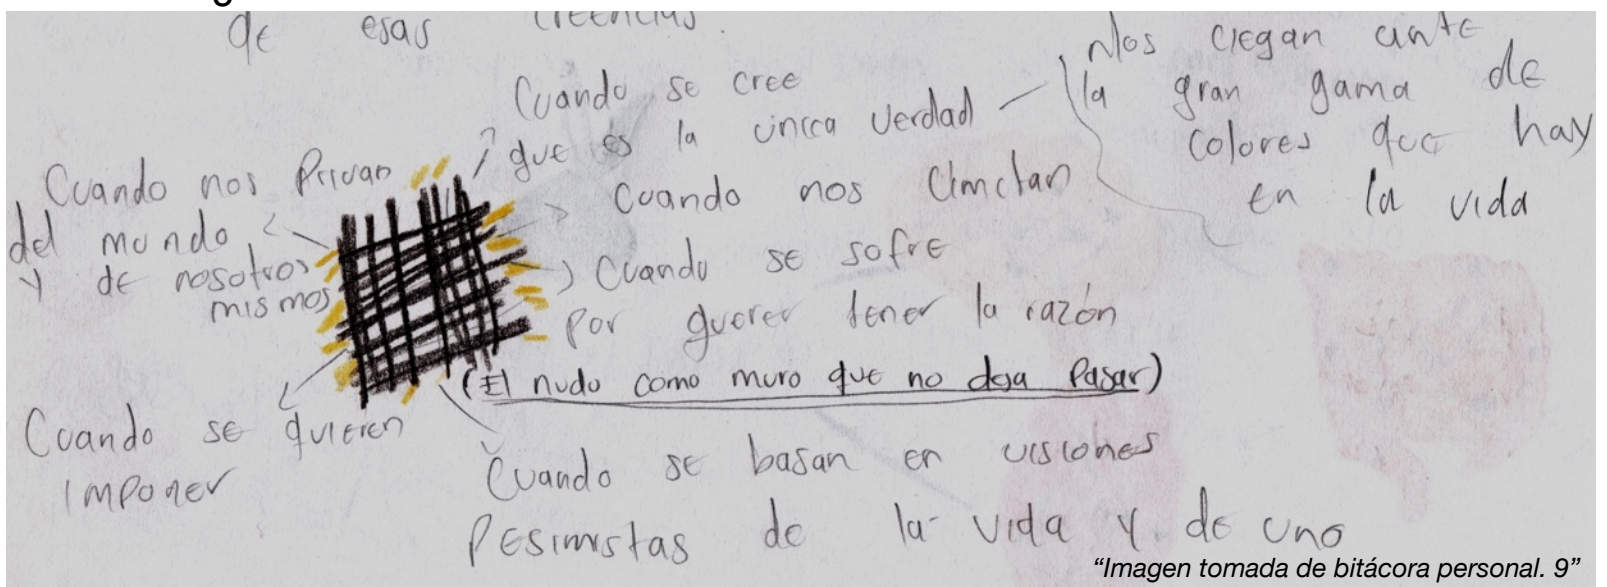 de esas creencias
Cuando se cree
que es la única verdad
Nos ciegan ante
la gran gama de
colores que hay
en la vida
Cuando nos Privan
del mundo
y de nosotros
mismos
Cuando nos
Cuando se sofre
por querer tener la razón
(El nudo como muro que no deja Pasar)
Cuando se quieren
imponer
Cuando se basan en visiones
Pesimistas de la vida y de uno
“Imagen tomada de bitácora personal. 9”